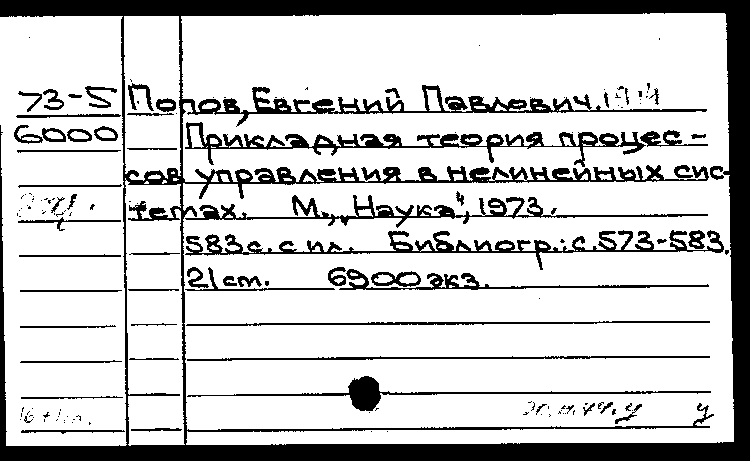 73-5 Попов, Евгений Павлович. 1914
6000 Прикладная теория процес-
сов управления в нелинейных сис-
темах. М., „Наука“, 1973.
583 с. с ил. Библиогр.: с. 573-583.
21 cm. 6900 экз.